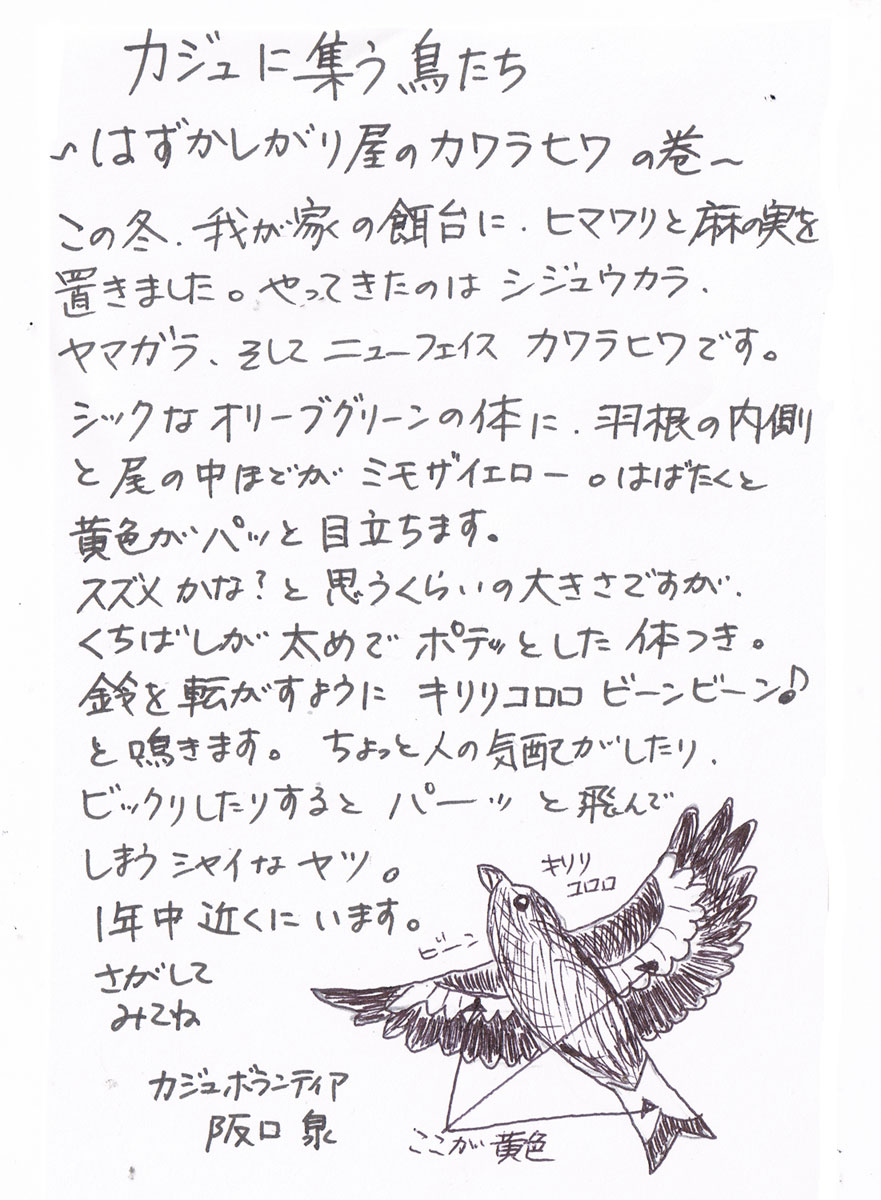 カジュに集う鳥たち
~はずかしがり屋のカワラヒワの巻~
この冬、我が家の餌台に、ヒマワリと麻の実を
置きました。やってきたのはシジュウカラ、
ヤマガラ、そしてニューフェイス カワラヒワです。
シックなオリーブグリーンの体に、羽根の内側
と尾の中ほどがミモザイエロー。はばたくと
黄色がパッと目立ちます。
スズメかな?と思うくらいの大きさですが、
くちばしが太めでポテッとした体つき。
鈴を転がすように キリリコロロ ビーンビーン♪
と鳴きます。 ちょっと人の気配がしたり、
ビックリしたりすると パーッと飛んで
しまうシャイなヤツ。
1年中近くにいます。
さがして
みてね
キリリ
コロロ
ビーン
ここが黄色
カジュボランティア
阪口 泉